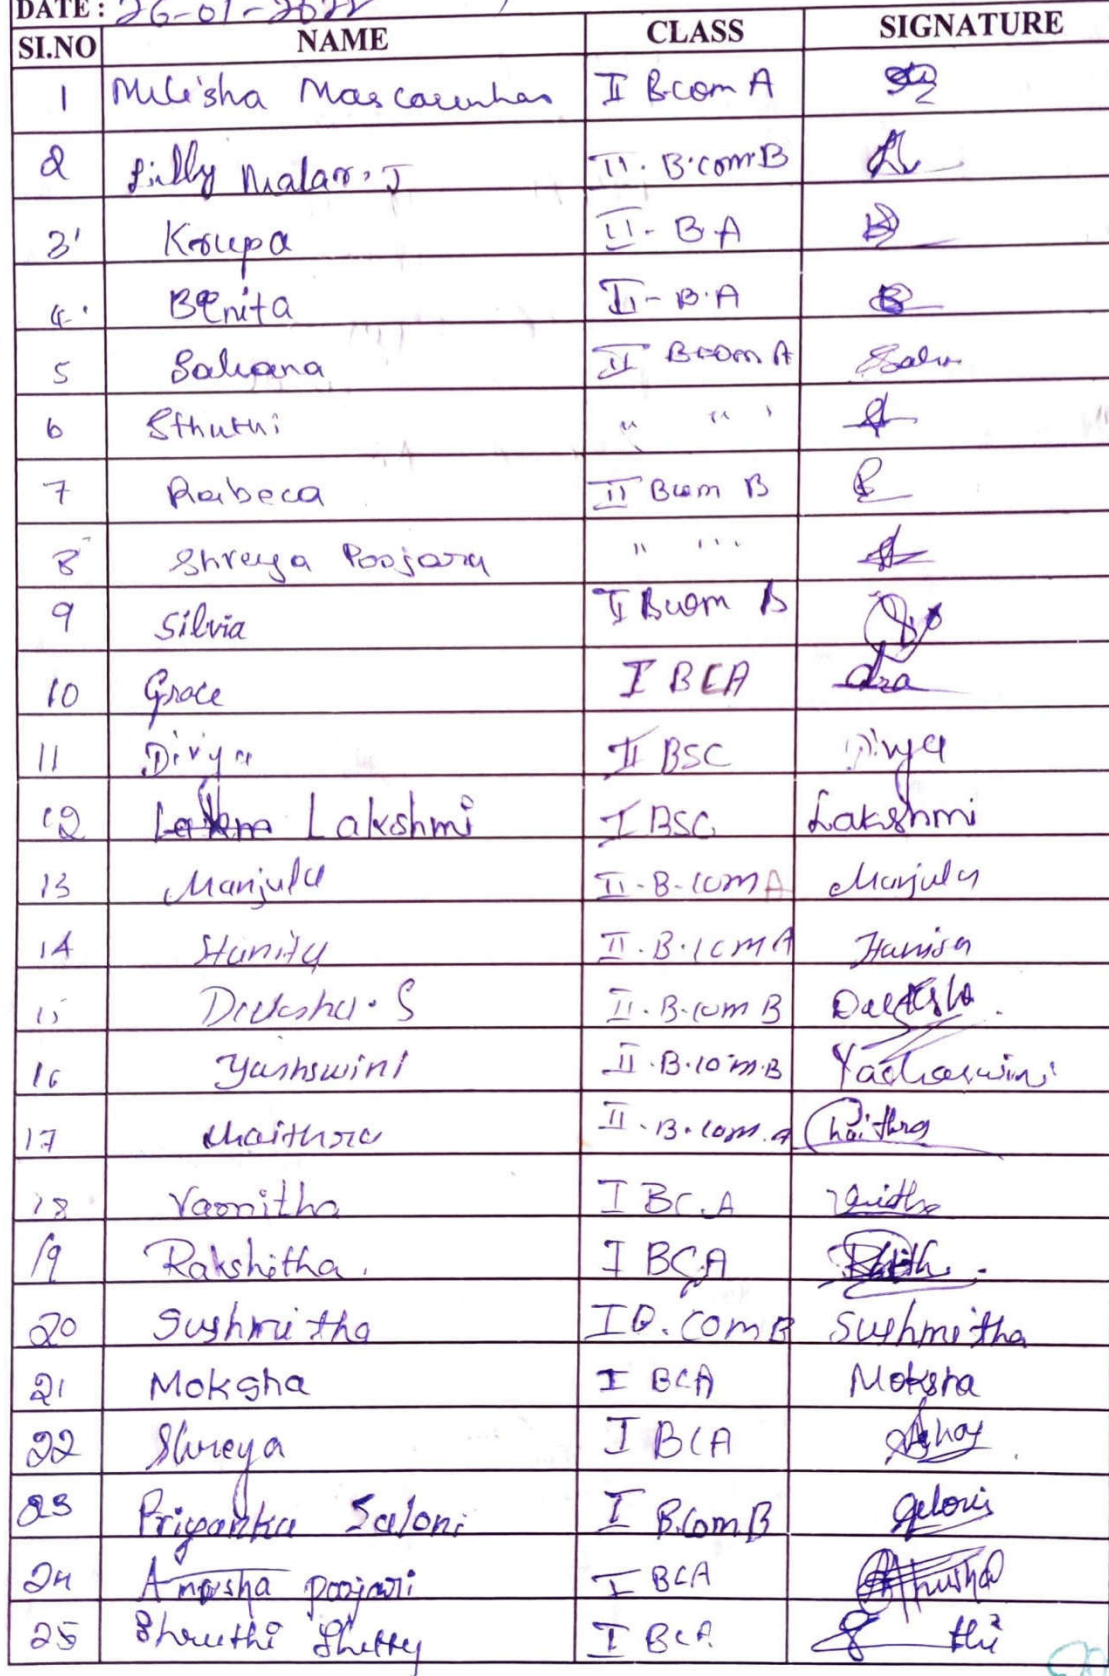 DATE: 26-01-2022
SI.NO NAME CLASS SIGNATURE
1 Milisha Mascarenhas II B.com A
2 Lilly Malar. J II. B.com B
3 Krupa II- B.A
4. Benita II- B.A
5 Sahana II B.com A Sahn
6 Sthuthi " " '
7 Rabeca II Bcom B
8 Shreya Poojary " "'
9 Silvia II Bcom B
10 Grace I BCA Gra
11 Divya II BSC Divya
12 Lakshmi I BSC Lakshmi
13 Manjula II-B-com A Manjula
14 II.B.com A
15 Deeksha.S II.B.com B Deeksha.
16 Yashswini II.B.com.B Yashaswini
17 Chaithra II.B.com.A Chaithra
18 Vanitha I BC.A Vanitha
19 Rakshitha. I BCA
20 Sushmitha I B.com B Sushmitha
21 Moksha I BCA Moksha
22 Shreya I BCA
23 Priyanka Saloni I B.Com B
24 Anusha poojari I BCA Anusha
25 Shruthi Shetty I BCA S thi